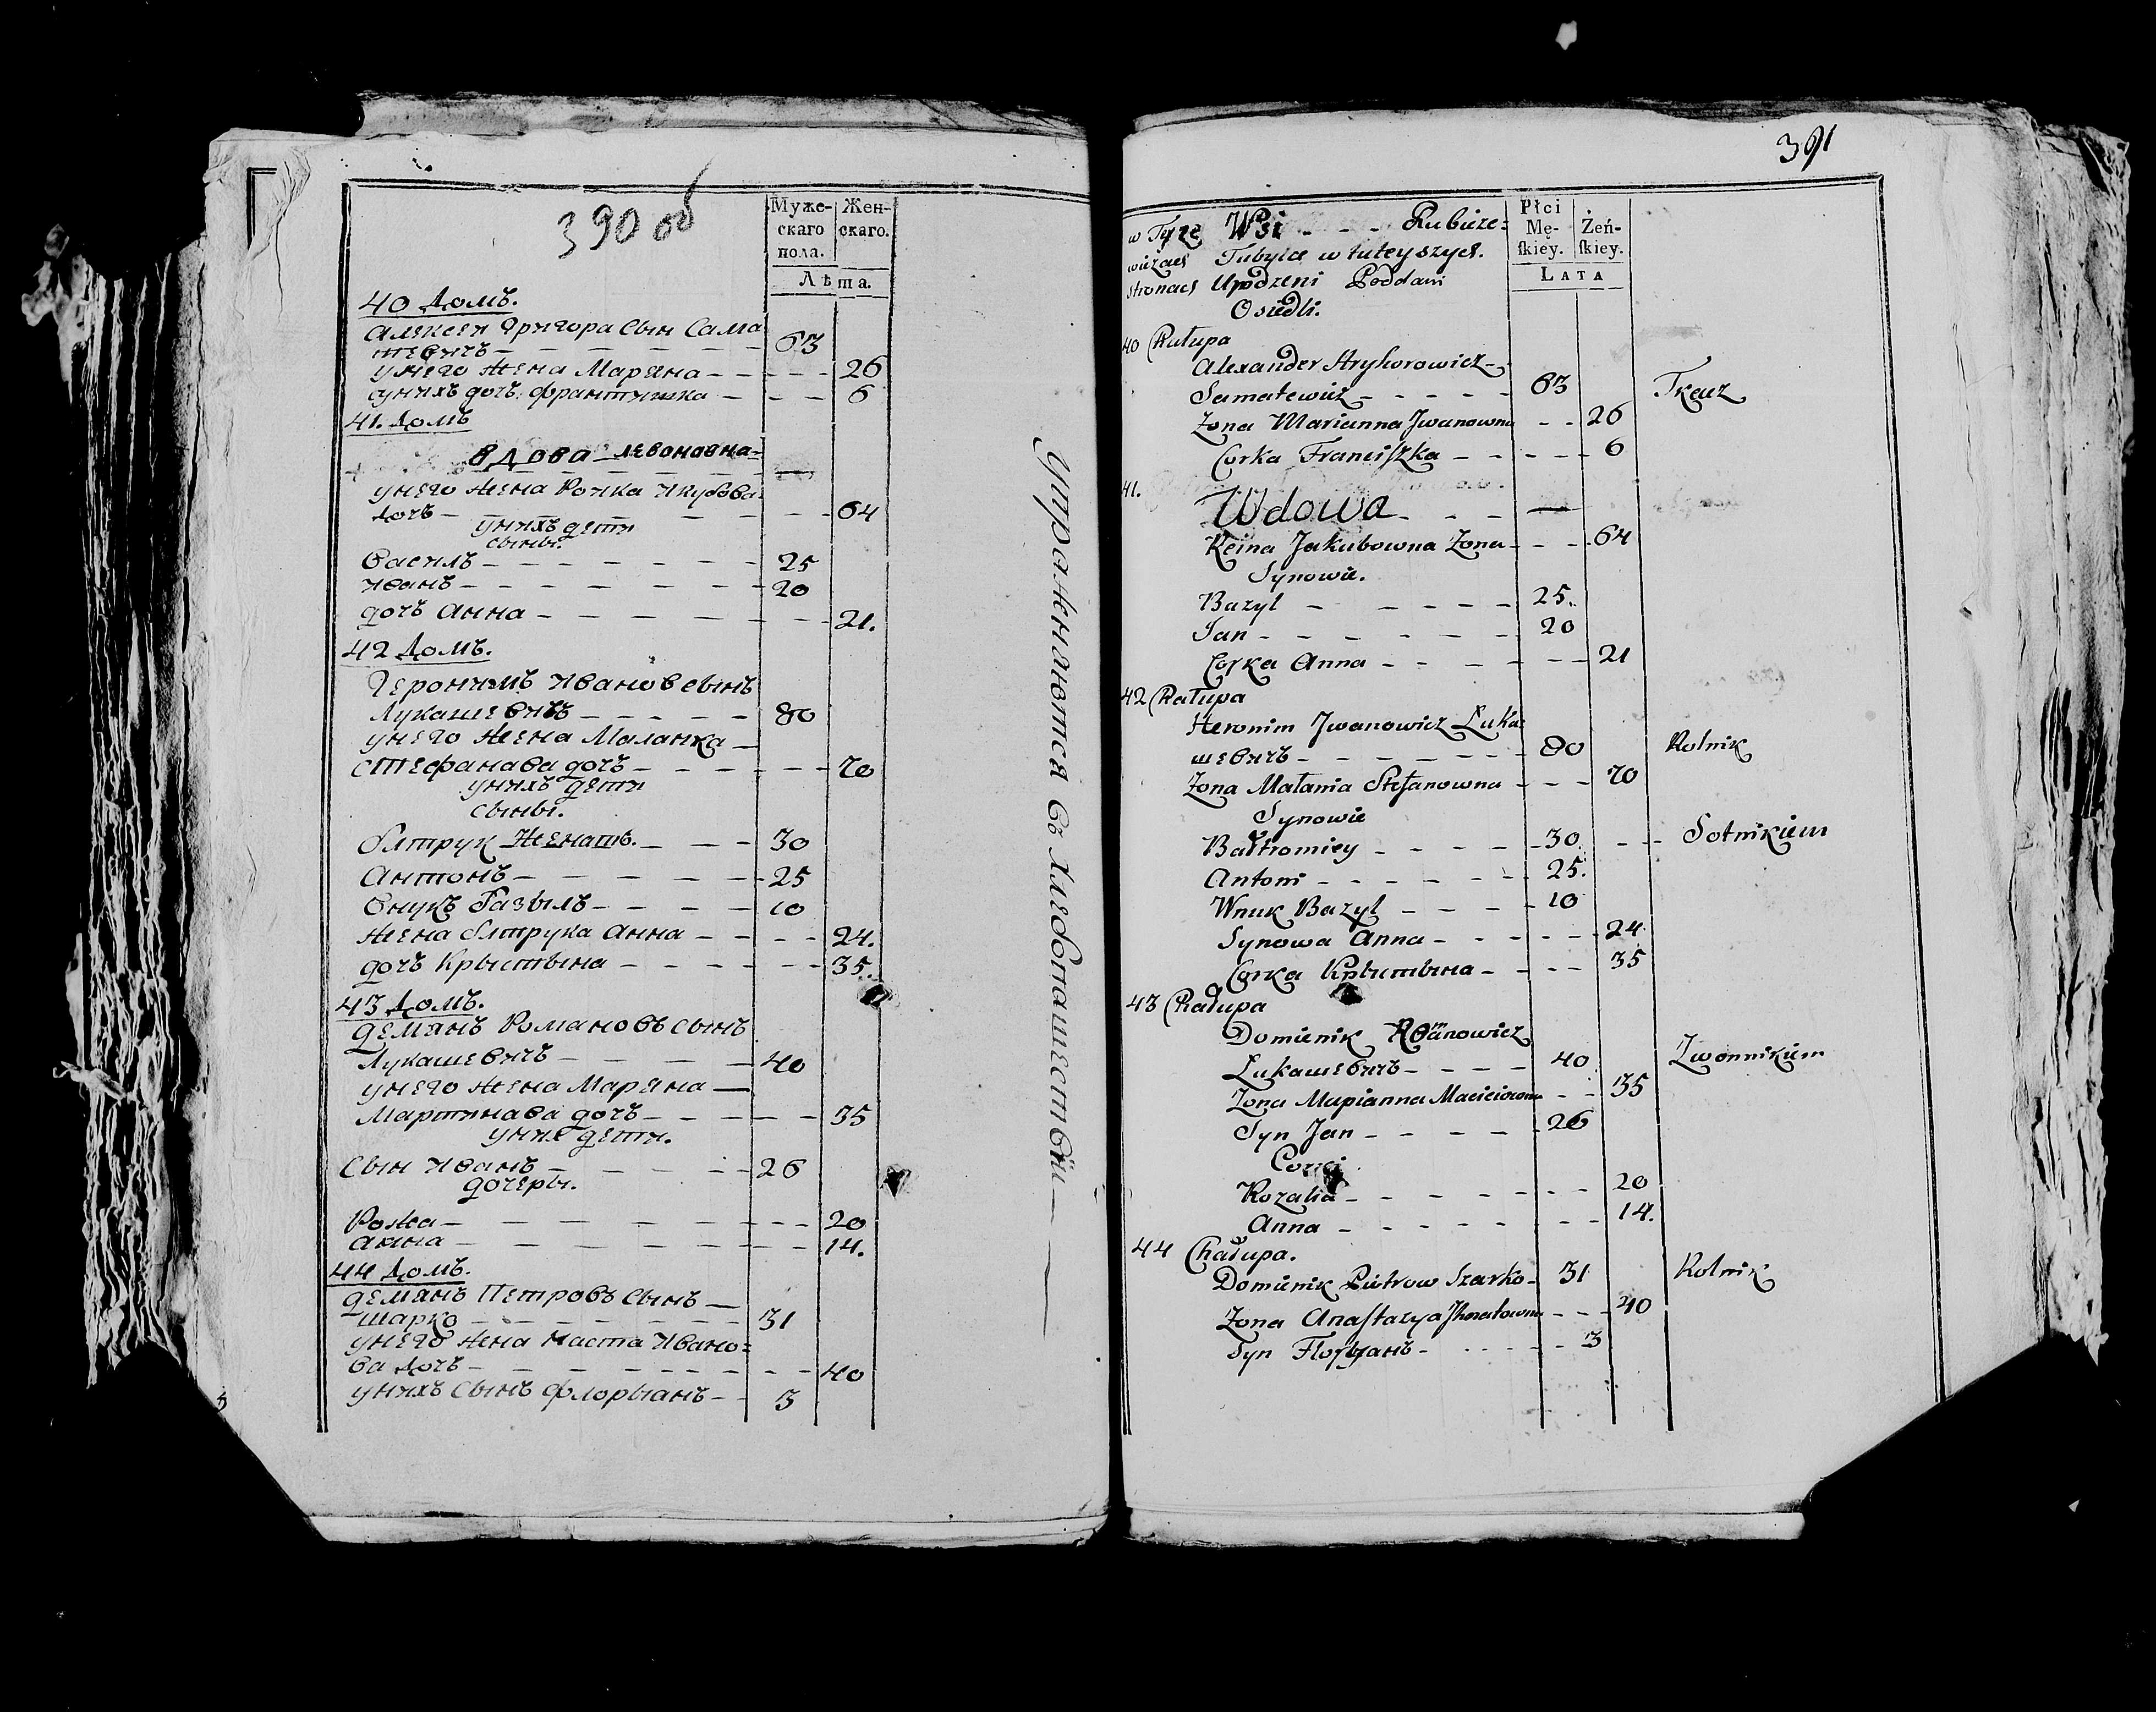 390 об
Муже- Жен-
скаго скаго.
пола.
Лѣта.
40 Домъ.
Алексей Григора Сын Сама
тевичъ 63
унего жена Маряна 26
унихъ дочъ франтишка 6
41. Домъ
вдова левоновна
унего жена Ронка Якубова
дочъ 64
унихъ дети
сыны.
Василъ 25
Иванъ 20
дочъ Анна 21.
42 Домъ.
Геронимъ Иванов сынъ
Лукашевичъ 80
унего жена Маланка
Стефанава дочъ 70
унихъ дети
сыны.
Бятрук Женатъ. 30
Антонъ 25
Внукъ базылъ 10
жена бятрука Анна 24.
дочъ Крыстына 35.
43 Домъ.
Демянъ Романовъ сынъ
Лукашевичъ 40
унего жена Маряна
Мартинава дочъ 35
уних дети.
Сын Иванъ 26
дочеры.
Рожа 20
Анна 14.
44 Домъ.
Демянъ Петровъ Сынъ
шарко 31
унего жена Наста Ивано=
ва дочъ 40
унихъ Сынъ флорыанъ 3
Упражняются в хлебопашестви
391
w Teyze Wsi Rubieże=
wiczach Tubylce w tuteyszych.
stronach Urodzeni Poddani
Osiedli.
Płci
Mę- Żeń-
skiey. skiey.
LATA
40 Chałupa
Alexander Hryhorowicz
Samatewicz 63 Tkacz
Zona Marianna Jwanowna 26
Corka Franciszka 6
41.
Wdowa
Reina Jakubowna Zona 64
Synowie.
Bazyl 25.
Jan 20
Corka Anna 21
42 Chałupa
Heronim Jwanowicz Łuka=
шевичъ 80 Rolnik
Zona Małania Stefanowna 70
Synowie
Bałtromiey 30. Sotnikiem
Antoni 25.
Wnuk Bazyl 10
Synowa Anna 24.
Corka Крыстына 35
43 Chałupa
Dominik Romanowicz
Łukaшевичъ 40 Zwonnikiem
Zona Mapianna Macieiowna 35
Syn Jan 26
Corki
Rozalia 20
Anna 14.
44 Chałupa.
Dominik Piotrow Szarko 31 Rolnik
Zona Anastazya Jhnatowna 40
Syn Florыанъ 3